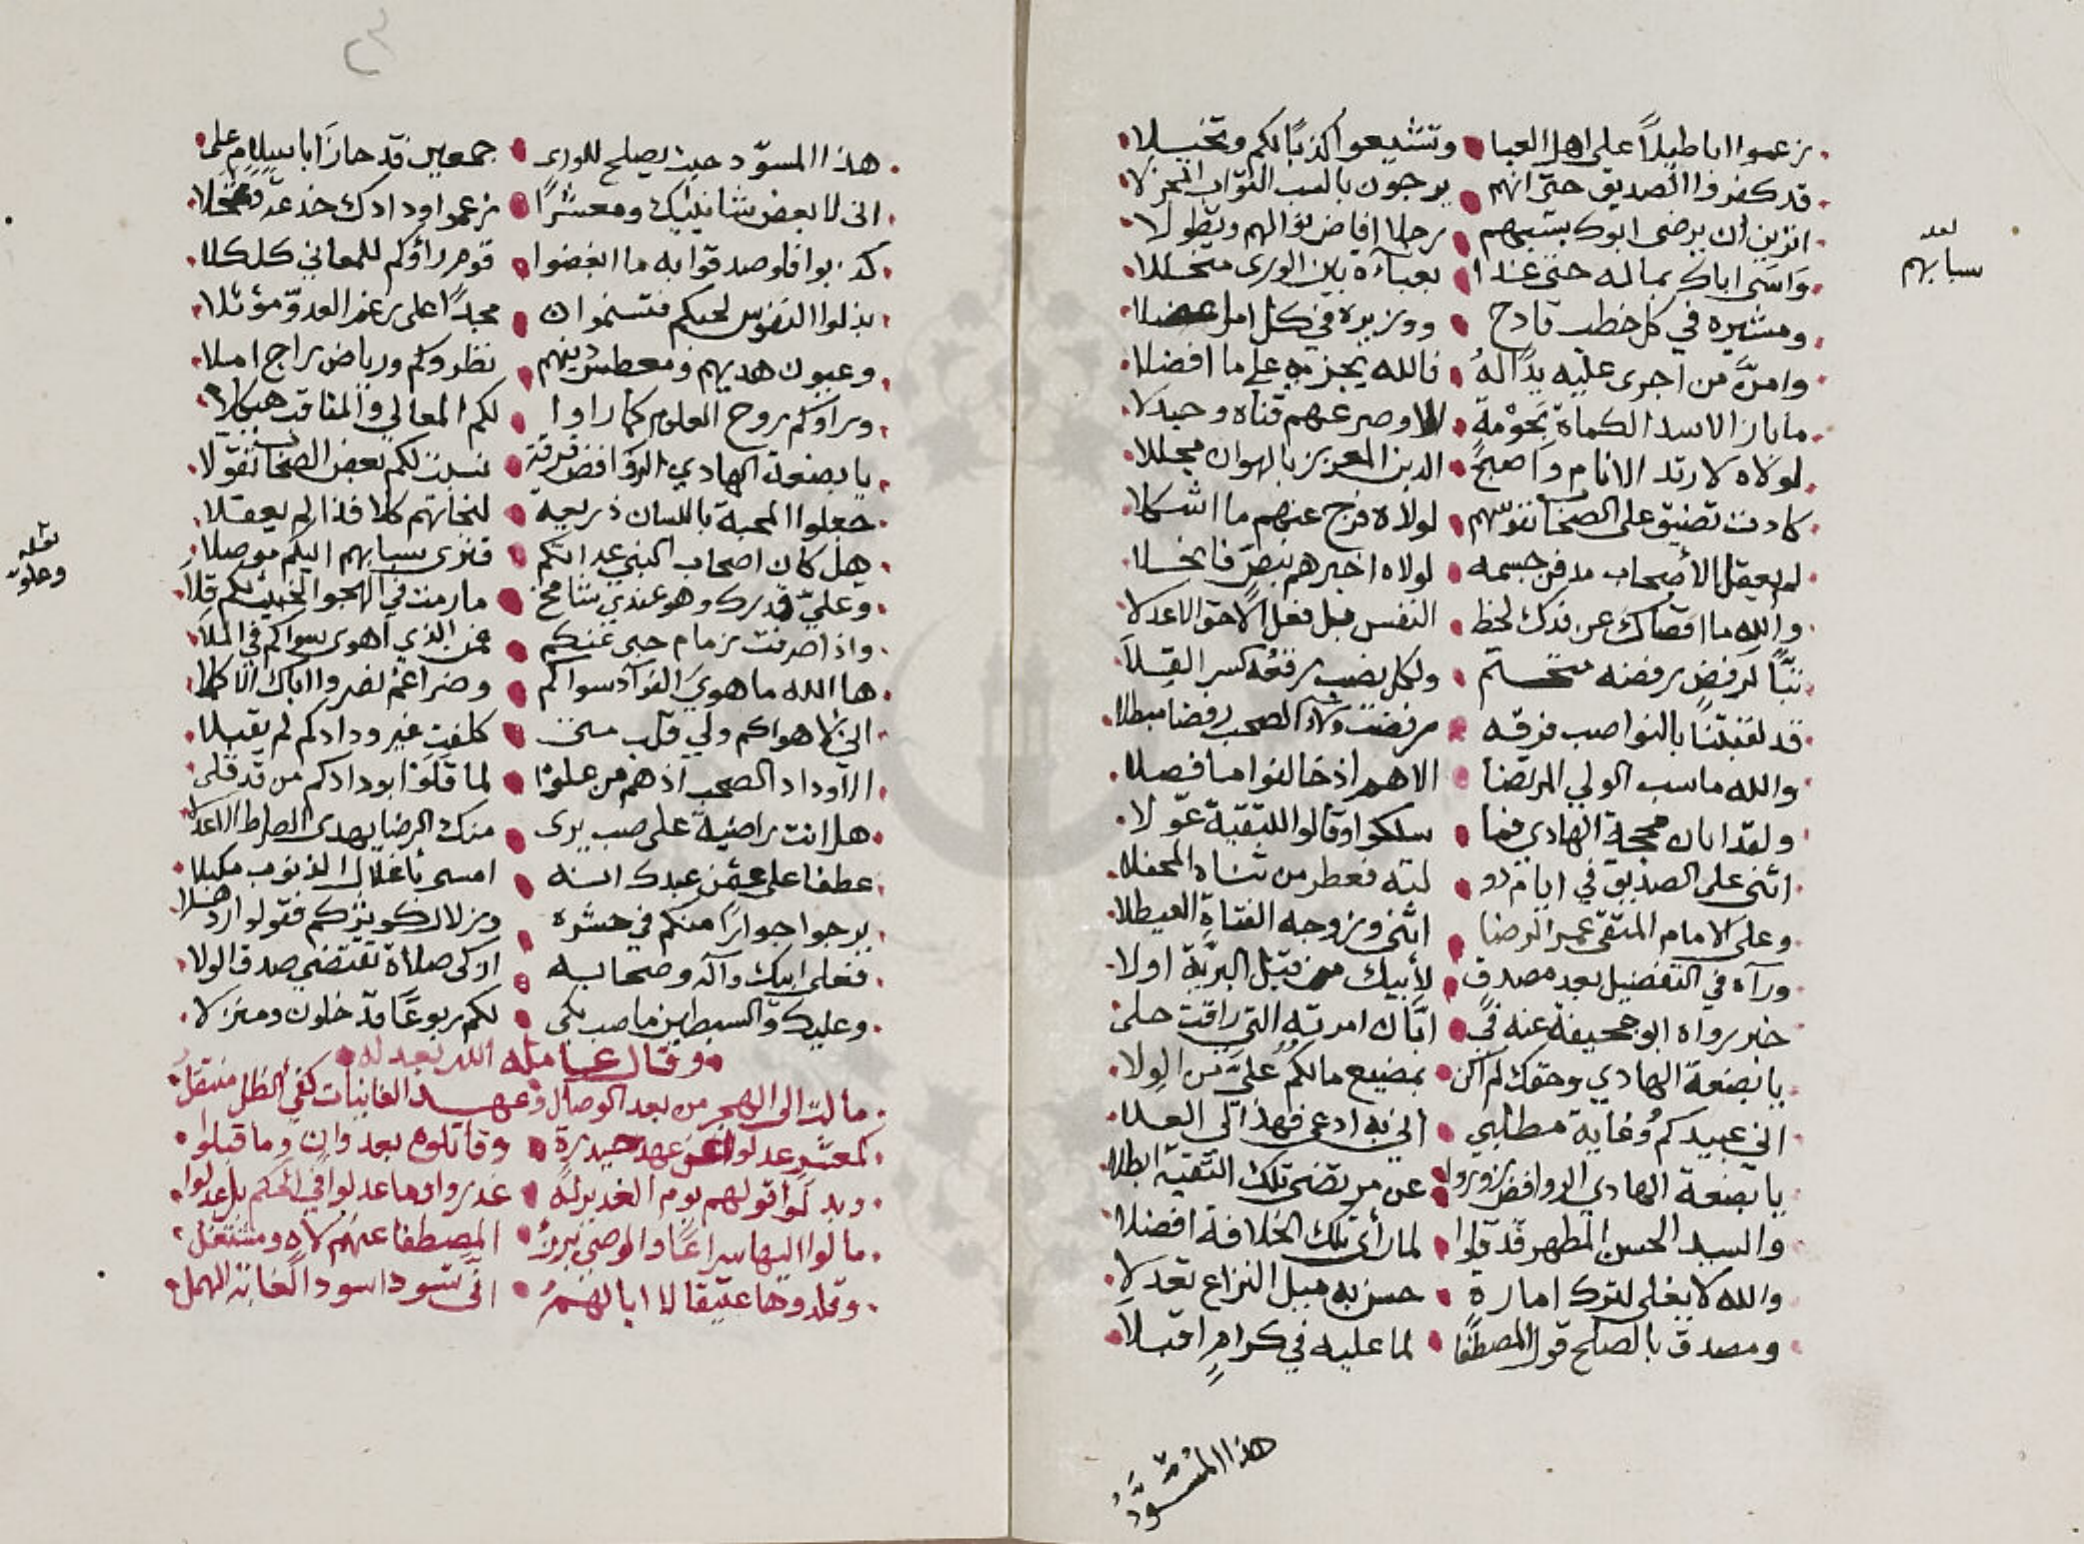 زعموا اباطيلاً على اهل العبا وتشيعوا كذبًا لكم وتخيلا
قد كفروا الصديق حتى انهم يرجون بالسب الثواب المجزلا
اترين ان يرضى ابوك بسبهم رجلا افاض نوالهم وتطولا
واسى اباك بماله حتى غدا بعباءة بين الورى متخللا
ومشيره في كل خطب فادح ووزيره في كل امر اعضلا
وامنّ من اجرى عليه يدًا لهُ فالله يجزيه على ما افضلا
ما بارز الاسد الكماة بحومة الا وصرعهم قناه وجدلا
لولاه لارتد الانام واصبح الدين العزيز بالهوان مجللا
كادت تضيق على الصحاب نفوسهم لولاه فرج عنهم ما اشكلا
لم يعقل الأصحاب مدفن جسمه لولاه اخبرهم بنص فانجلا
والله ما اقصاك عن فدك لحظ النفس بل فعل الاحق الاعدلا
تبًّا لرفض رفضه متحتم ولكل نصب رفعه كسر القلا
قد لقبتنا بالنواصب فرقه رفضت ولاء الصحب رفضا مبطلا
والله ما سب الولي المرتضا الا هم اذ خالفوا ما فصلا
ولقد ابان محجة الهادي فما سلكوا وقالوا للتقية عوّلا
اثنى على الصديق في ايام دو لته فعطر من ثناه المحفلا
وعلى الامام المتقى عمر الرضا اثنى وزوجه الفتاة العيطلا
ورآه في التفضيل بعد مصدق لأبيك من قبل البريّة اولا
خبر رواه ابو جحيفة عنه في ابّان امرته التي راقت حلى
يا بضعة الهادي وحقك لم اكن بمضيع ما لكمُ عليّ من الولا
انى عبيدكمُ وغاية مطلبي اني به ادعى فهذا لى العلا
يا بضعة الهادي الروافض زوروا عن مرتضى تلك التقية ابطلا
والسيد الحسن المطهر قد قلوا لما رأى تلك الخلافة افضلا
والله لا يغلى لترك امارة حسن به سبل النزاع تعدلا
ومصدق بالصلح قول المصطفا لما عليه في كرام اقبلا
هذا المُسَوَّدُ
بعد
سبابهم
هذا المسوّد حيث يصلح للورى جمعين قد حازا باسلام على
انى لابغض شانئيك ومعشرًا زعموا ودادك خدعة وتمحلا
كذبوا فلو صدقوا به ما ابغضوا قوم رأوكم للمعاني كلكلا
بذلوا النفوس لحبكم فتسنموا مجدًا على رغم العدوّ مؤثلا
وعيون هديهم ومعطس دينهم نظروكم ورياض راج املا
ورآوكم روح العلوم كما راوا لكم المعالي والمناقب هيكلا
يا بضعة الهادي الروافض فرقة نسبت لكم بغض الصحاب تقوّلا
جعلوا المحبة باللسان ذريعة لنجاتهم كلا فذا لم يعقلا
هل كان اصحاب النبي عداتكم فنرى سبابهم اليكم موصلا
وعليّ قدرك وهو عندي شامخ ما رمت في الهجو الخبيث لكم قلا
واذا صرفت زمام حبى عنكم فمن الذي اهوى سواكم في الملا
ها الله ما هوي الفوآد سواكم وضراغم نصروا اباك الاكملا
اني لاهواكم ولي قلب متى كلفت غير ودادكم لم يقبلا
الا وداد الصحب اذ هم من علوا لما قلوا بودادكم من قد قلى
هل انت راضية على صب يرى منك الرضا يهدى الصراط الاعدلا
عطفا على عمر عبيدك انه امسى باغلال الذنوب مكبلا
يرجوا جوارًا منكم في حشره وزلال كوثركم فقولوا ارد هلا
فعلى ابيك وآله وصحابه ازكى صلاة تقتضي صدق الولا
وعليك والسبطين ما صب بكى لكم ربوعًا قد خلون ومنزلا
وقال عامله الله بعدله
مالت الى الهجر من بعد الوصال وعهد الغانيات كفئ الظل منتقل
كمعشر عدلوا عن عهد حيدرة وقاتلوه بعدوان وما قبلوا
وبدلوا قولهم يوم الغدير له غدرا وما عدلوا في الحكم بل عدلوا
مالوا اليها سراعًا والوصى برزء المصطفا عنهم لاه ومشتغل
وقلدوها عتيقا لا ابا لهمُ انى تسود اسود الغابة الهمل